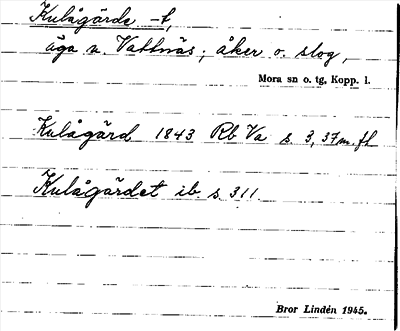 Kulågärde -t,
äga n. Vattnäs; åker o. slog,
Mora sn o. tg, Kopp. l.
Kulågärd 1843 Rb Va s. 3, 37 m. fl
Kulågärdet ib. s. 311.
Bror Lindén 1945.